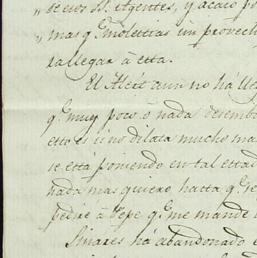 „ de esos SS. Agentes, y acaso po
„ mas qe. molestias sin provech
ra llegar à esta.
El Alcit aun no há lle
qe. muy poco ó nada desemb
esto es si no dilata mucho ma
se està poniendo en tal estad
nada mas quiero, hasta qe. je
pediré à Pepe qe. me mande
Linares há abandonado e